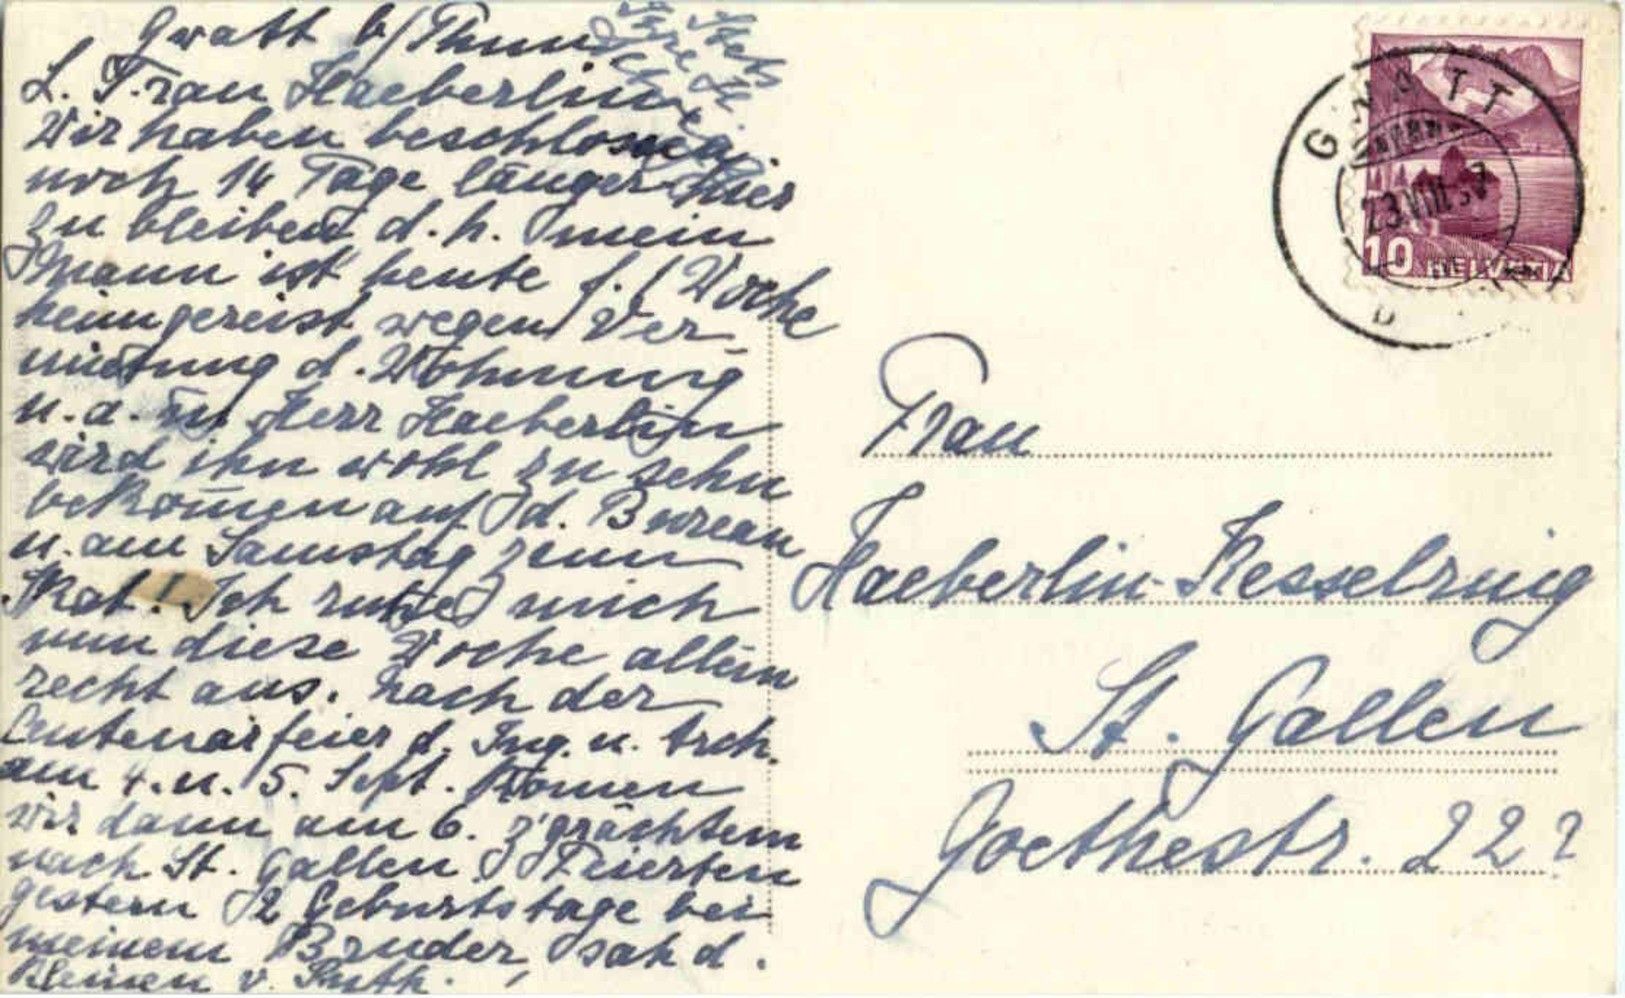 Gwatt b/Thun
L. Frau Haeberlin,
Wir haben beschlossen
noch 14 Tage länger hier
zu bleiben d. h. mein
Mann ist heute f. 1 Woche
heimgereist wegen Ver-
mietung d. Wohnung
u. a. m. Herr Haeberlin
wird ihn wohl zu sehn
bekom̄en auf d. Bureau
u. am Samstag zum
Skat! Ich ruhe mich
nun diese Woche allein
recht aus. Nach der
Centenarfeier d. Ing. u. Arch.
am 4. u. 5. Sept. kom̄en
wir dann am 6. z'grächtem
nach St. Gallen. Feierten
gestern 2 Geburtstage bei
meinem Bruder, sah d.
Kleinen v. Ruth.
GWATT
23.VIII.37
10 HELVETIA
Frau
Haeberlin-Kesselring
St. Gallen
Goethestr. 22?